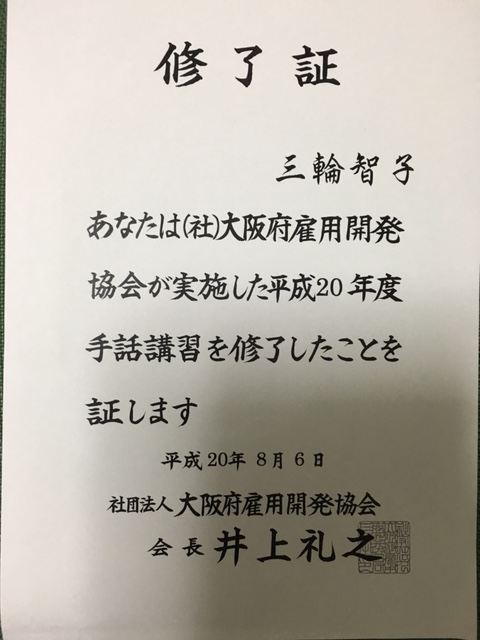 修了証
三輪智子
あなたは(社)大阪府雇用開発
協会が実施した平成20年度
手話講習を修了したことを
証します
平成20年8月6日
社団法人大阪府雇用開発協会
会長井上礼之